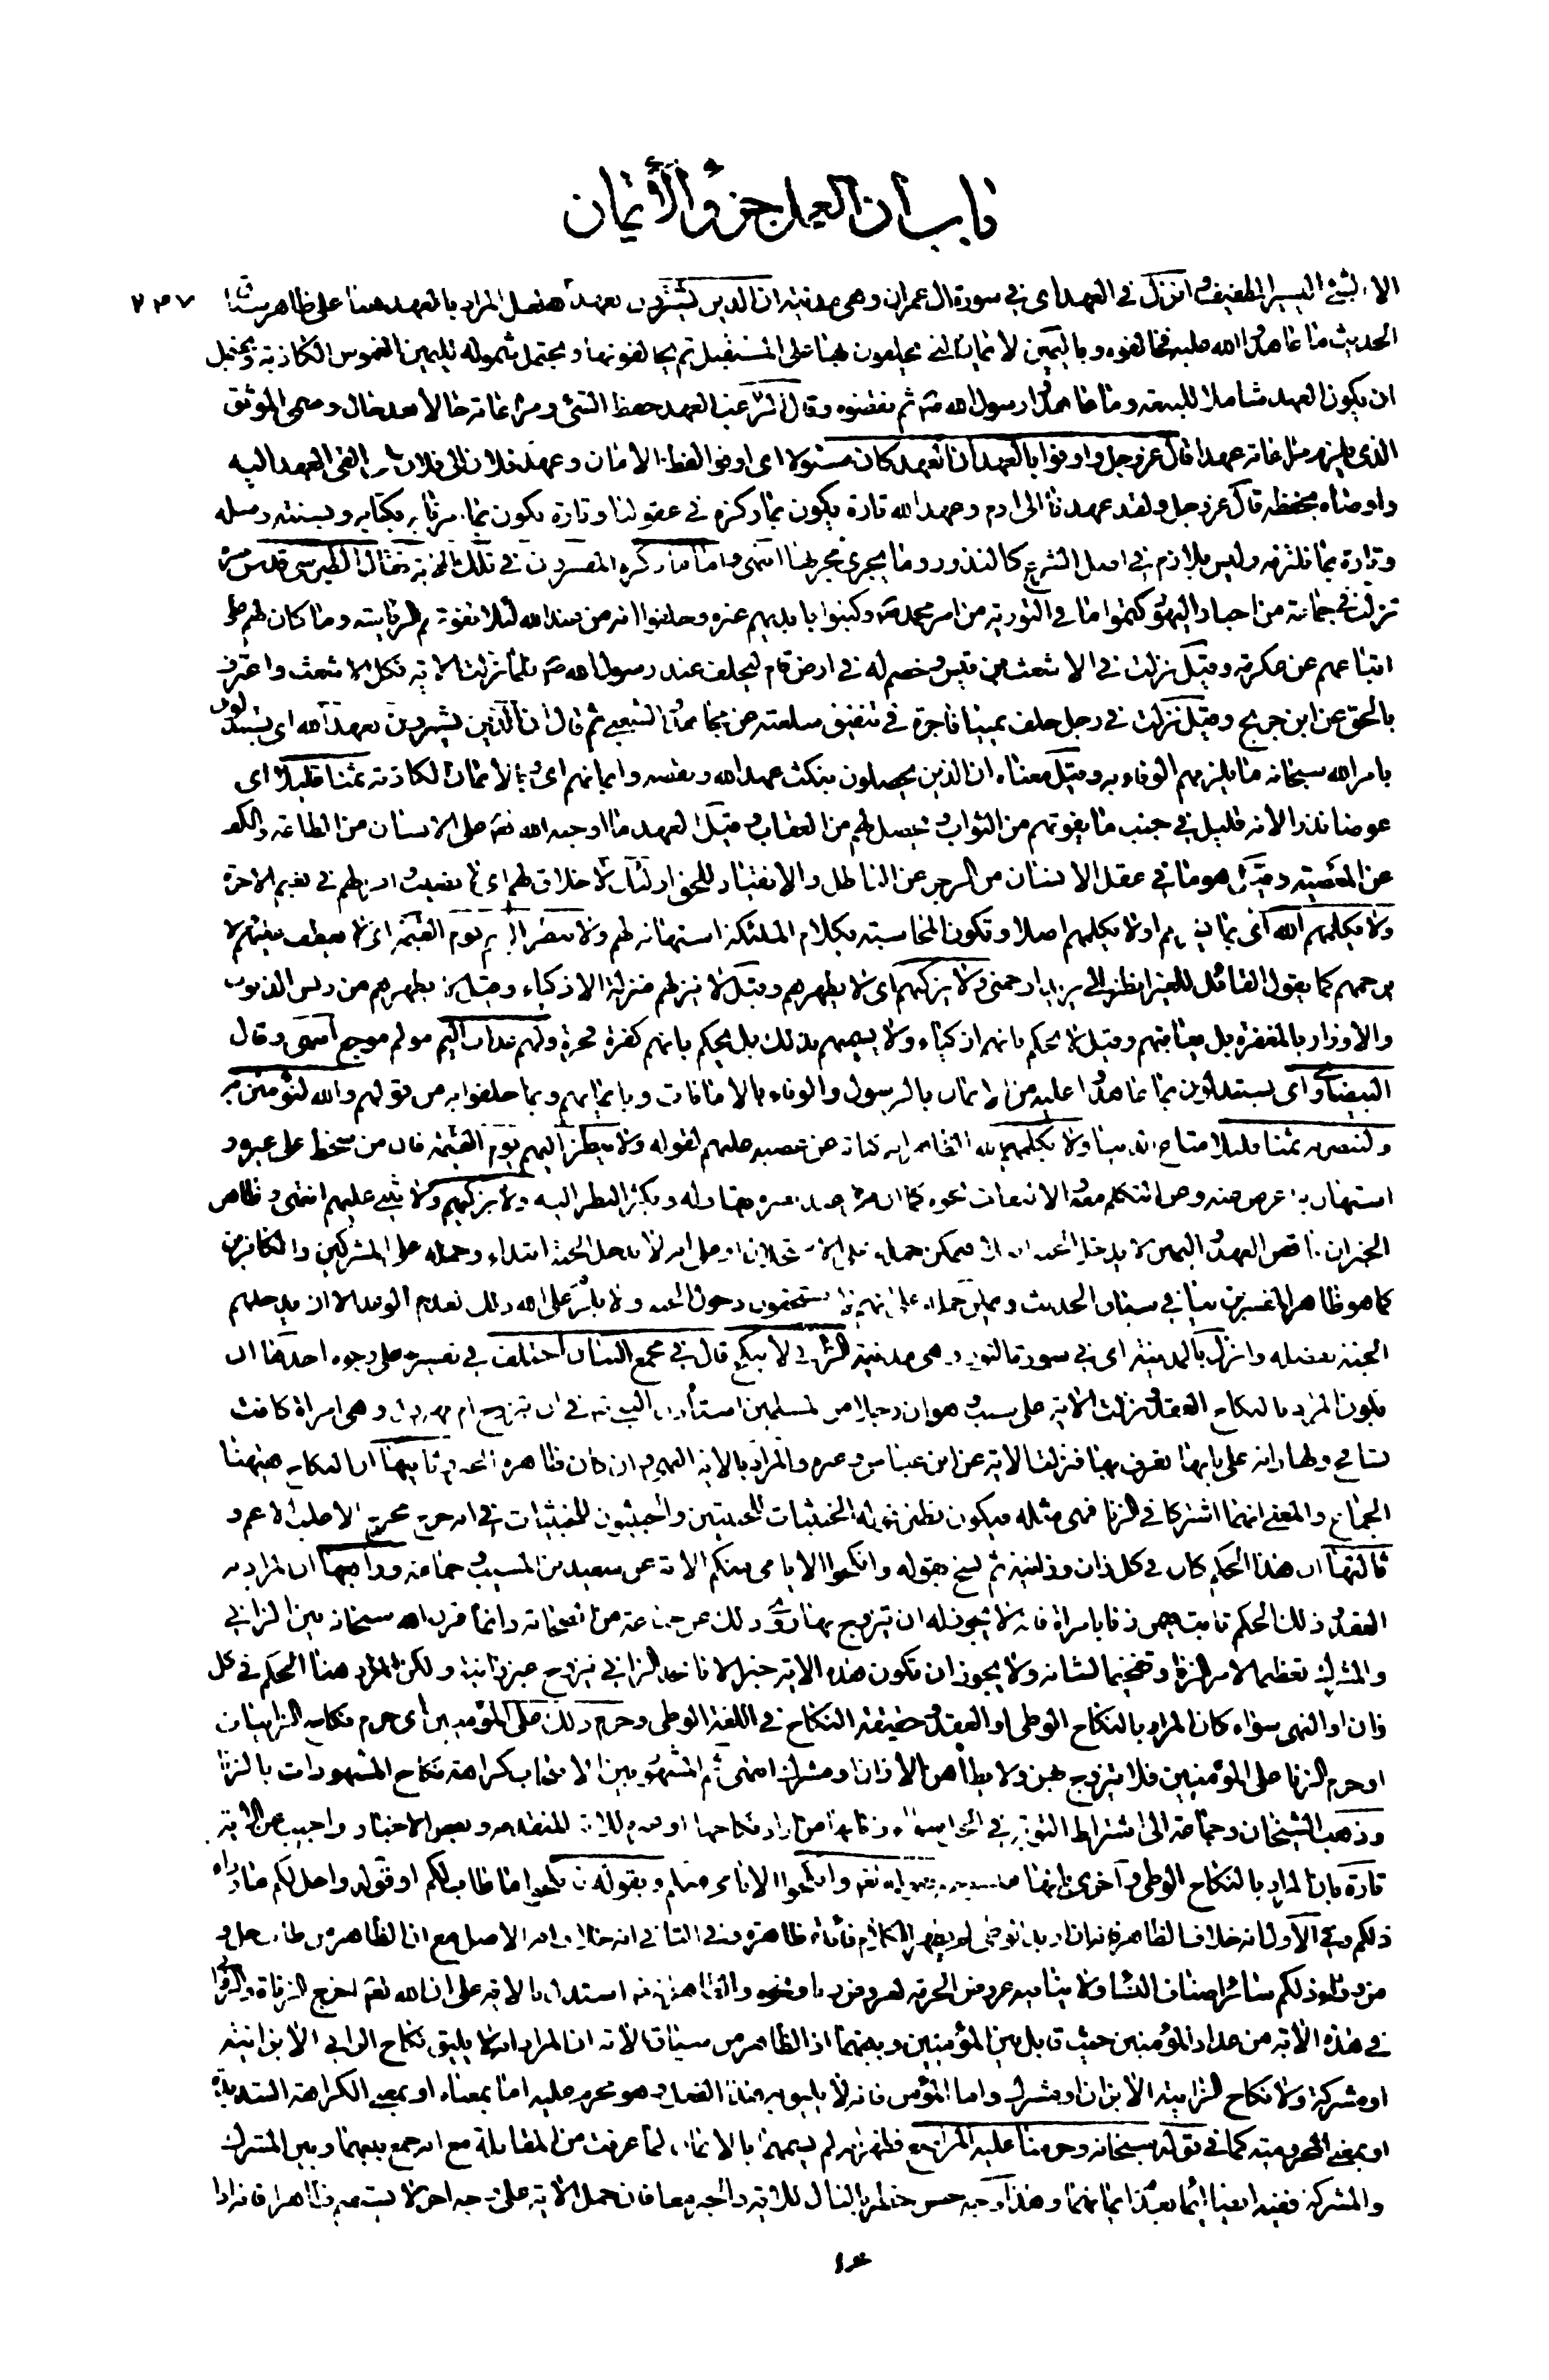 باب أن العمل جزء الأيمان
الا الشئ اليسير الطفيف وانزل في العهد اى في سورة ال عمران وهى مدنية ان الذين يشترون بعهد الله لعل المراد بالعهد هنا على ظاهر سياق ٢٣٧
الحديث ما عاهدوا الله عليه فخالفوه وباليمين الايمان التى يحلفون بها على المستقبل ثم يخالفونها ويحتمل شموله لليمين الغموس الكاذبة ويحتمل
ان يكون العهد شاملا للبيعة وما عاهدوا رسول الله ص ثم نقضوه وقال الراغب العهد حفظ الشئ ومراعاته حالا بعد حال وسمى الموثق
الذى يلزم مراعاته عهدا قال عز وجل واوفوا بالعهد ان العهد كان مسئولا اى اوفوا بحفظ الايمان وعهد فلان الى فلان اى القى العهد اليه
واوصاه بحفظه قال عز وجل ولقد عهدنا الى ادم وعهد الله تارة يكون بما ركزه في عقولنا وتارة يكون بما امرنا به بكتابه وبسنة رسله
وتارة بما نلتزمه وليس بلازم في اصل الشرع كالنذور وما يجرى مجراها انتهى واما ما ذكره المفسرون في تلك الاية فقال الطبرسى قدس سره
نزلت في جماعة من احبار اليهود كتموا ما في التورية من امر محمد ص وكتبوا بايديهم غيره وحلفوا انه من عند الله لئلا تفوتهم الرياسة وما كان لهم على
اتباعهم عن عكرمة وقيل نزلت في الاشعث بن قيس وخصم له في ارض قام ليحلف عند رسول الله ص فلما نزلت الاية نكل الاشعث واعترف
بالحق عن ابن جريج وقيل نزلت في رجل حلف يمينا فاجرة في تنفيق سلعته عن مجاهد والشعبي ثم قال ان الذين يشترون بعهد الله اى يستبدلون
بامر الله سبحانه ما يلزمهم الوفاء به وقيل معناه ان الذين يحصلون بنكث عهد الله ونقضه وايمانهم اى وبالايمان الكاذبة ثمنا قليلا اى
عوضا نذرا لانه قليل في جنب ما يفوتهم من الثواب ويحصل لهم من العقاب وقيل العهد ما اوجبه الله تعالى على الانسان من الطاعة والكف
عن المعصية وقيل هو ما في عقل الانسان من الزجر عن الباطل والانقياد للحق اولئك لا خلاق لهم اى لا نصيب وافر لهم في نعيم الاخرة
ولا يكلمهم الله اى بما يسرهم او لا يكلمهم اصلا وتكون المحاسبة بكلام الملئكة استهانة لهم ولا ينظر اليهم يوم القيمة اى لا يعطف عليهم ولا
يرحمهم كما يقول القائل للغير انظر الى يريد ارحمنى ولا يزكيهم اى لا يطهرهم وقيل لا ينزلهم منزلة الازكياء وقيل لا يطهرهم من دنس الذنوب
والاوزار بالمغفرة بل يعاقبهم وقيل لا يحكم بانهم ازكياء ولا يسميهم بذلك بل يحكم بانهم كفرة فجرة ولهم عذاب اليم مولم موجع انتهى وقال
البيضاوى اى يستبدلون بما عاهدوا عليه من الايمان بالرسول والوفاء بالامانات وبايمانهم وبما حلفوا به من قولهم والله لنؤمنن به
ولننصرنه ثمنا قليلا متاع الدنيا ولا يكلمهم الله الظاهر انه كناية عن غضبه عليهم لقوله ولا ينظر اليهم يوم القيمة فان من سخط على غيره و
استهان به اعرض عنه وعن التكلم معه والالتفات نحوه كما ان من اعتد بغيره يقاوله ويكثر النظر اليه ولا يزكيهم ولا يثنى عليهم انتهى وظاهر
الخبر ان ناقض العهد واليمين لا يدخل الجنة ابدا فيمكن حمله على الاستحلال او على انه لا يدخل الجنة ابتداء وحمله على المشركين والكافرين
كما هو ظاهر المفسرين ينافي سياق الحديث ويمكن حمله على انهم لا يستحقون دخول الجنة ولا
الجنة بفضله وانزل بالمدينة اى في سورة النور وهى مدنية الزانى لا ينكح قال في مجمع البيان اختلف في تفسيره على وجوه احدها ان
يكون المراد بالنكاح العقد ونزلت الاية على سبب وهو ان رجلا من المسلمين استأذن النبي ص في ان يتزوج ام مهزول وهى امراة كانت
تسافح ولها راية على بابها تعرف بها فنزلت الاية عن ابن عباس وغيره والمراد بالاية النهى وان كان ظاهره الخبر وثانيها ان النكاح هيهنا
الجماع والمعنى انهما اشتركا في الزنا فهى مثله فيكون نظير قوله الخبيثات للخبيثين والخبيثون للخبيثات في انه خرج مخرج الاغلب الاعم و
ثالثها ان هذا الحكم كان في كل زان وزانية ثم نسخ بقوله وانكحوا الايامى منكم الاية عن سعيد بن المسيب وجماعة ورابعها ان المراد به
العقد وذلك الحكم ثابت فيمن زنا بامراة فانه لا يجوز له ان يتزوج بها روى ذلك عن جماعة من الصحابة وانما قرن الله سبحانه بين الزانى
والمشرك تعظيما لامر الزنا وتفخيما لشانه ولا يجوز ان تكون هذه الاية خبرا لانا نجد الزانى يتزوج غير زانية ولكن المراد هنا الحكم في كل
زان او النهى سواء كان المراد بالنكاح الوطى او العقد وحقيقة النكاح في اللغة الوطى وحرم ذلك على المؤمنين اى حرم نكاح الزانيات
او حرم الزنا على المؤمنين فلا يتزوج بهن ولا يطأهن الا زان او مشرك انتهى ثم المشهور بين الاصحاب كراهة نكاح المشهورات بالزنا
وذهب الشيخان وجماعة الى اشتراط التوبة في الحل سواء زنا بها من اراد نكاحها او غيره للاية المتقدمة وبعض الاخبار واجيب عن الاية
تارة بان المراد بالنكاح الوطى واخرى بانها منسوخة بقوله تعالى وانكحوا الايامى منكم وبقوله فانكحوا ما طاب لكم او قوله واحل لكم ما وراء
ذلكم وفي الاول انه خلاف الظاهر
سائر اصناف النسا ولا ينافيه عروض الحرمة والظاهر انه استدل بالاية على ان الله تعالى لم يخرج الزناة والزوانى
في هذه الاية من عداد المؤمنين حيث قابل بين المؤمنين وبينهما اذ الظاهر من سياق الاية ان المراد انه لا يليق نكاح الزانى الا بزانية
او مشركة ولا نكاح الزانية الا بزان او مشرك واما المؤمن فانه لا يليق به هذا الفعل وهو محرم عليه اما بمعناه او بمعنى الكراهة الشديدة
او بمعنى المحرومية كما في قوله سبحانه وحرمنا عليه المراضع فظهر انه لم يسمهما بالايمان لما عرفت من المقابلة مع انه جمع بينهما وبين المشرك
والمشركة ففيه ايضا ايماء بعدم ايمانهما وهذا وجه حسن خطر بالبال للاية
١٠٣